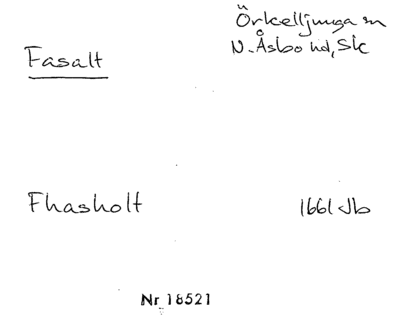 Örkelljunga sn
Fasalt
N. Åsbo hd, Sk
Fhasholt
1661 Jb
Nr 18521